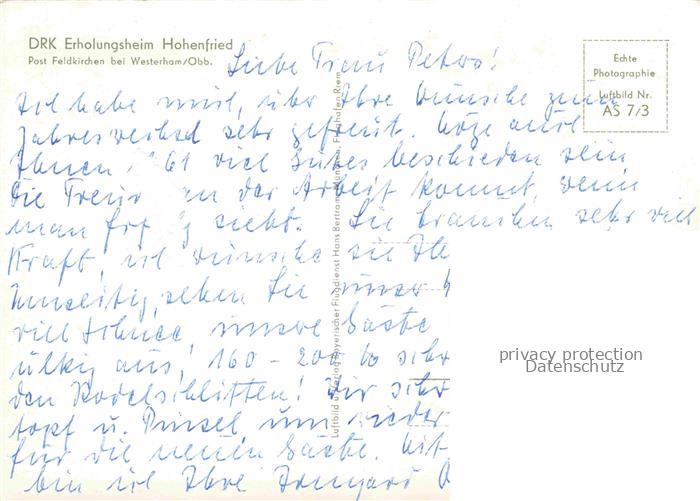 DRK Erholungsheim Hohenfried
Post Feldkirchen bei Westerham/Obb.
Echte
Photographie
Luftbild Nr.
AS 7/3
Liebe Frau Peters!
Ich habe mich über Ihre Wünsche zum
Jahreswechsel sehr gefreut. Möge auch
Ihnen viel Gutes beschieden sein
Die Freude an der Arbeit kommt, wenn
man sieht. Sie brauchen sehr viel
Kraft, ich wünsche sie
sehen Sie unser
viel Schnee, unsere Gäste
ulkig aus! 160 - 200
den Rodelschlitten! Wir
topf u. Pinsel um wieder
für die neuen Gäste. Mit
bin ich Ihre Irmgard
Luftbild u. Verlag Bayerischer Flugdienst Hans Bertram, München, Flughafen Riem
privacy protection
Datenschutz